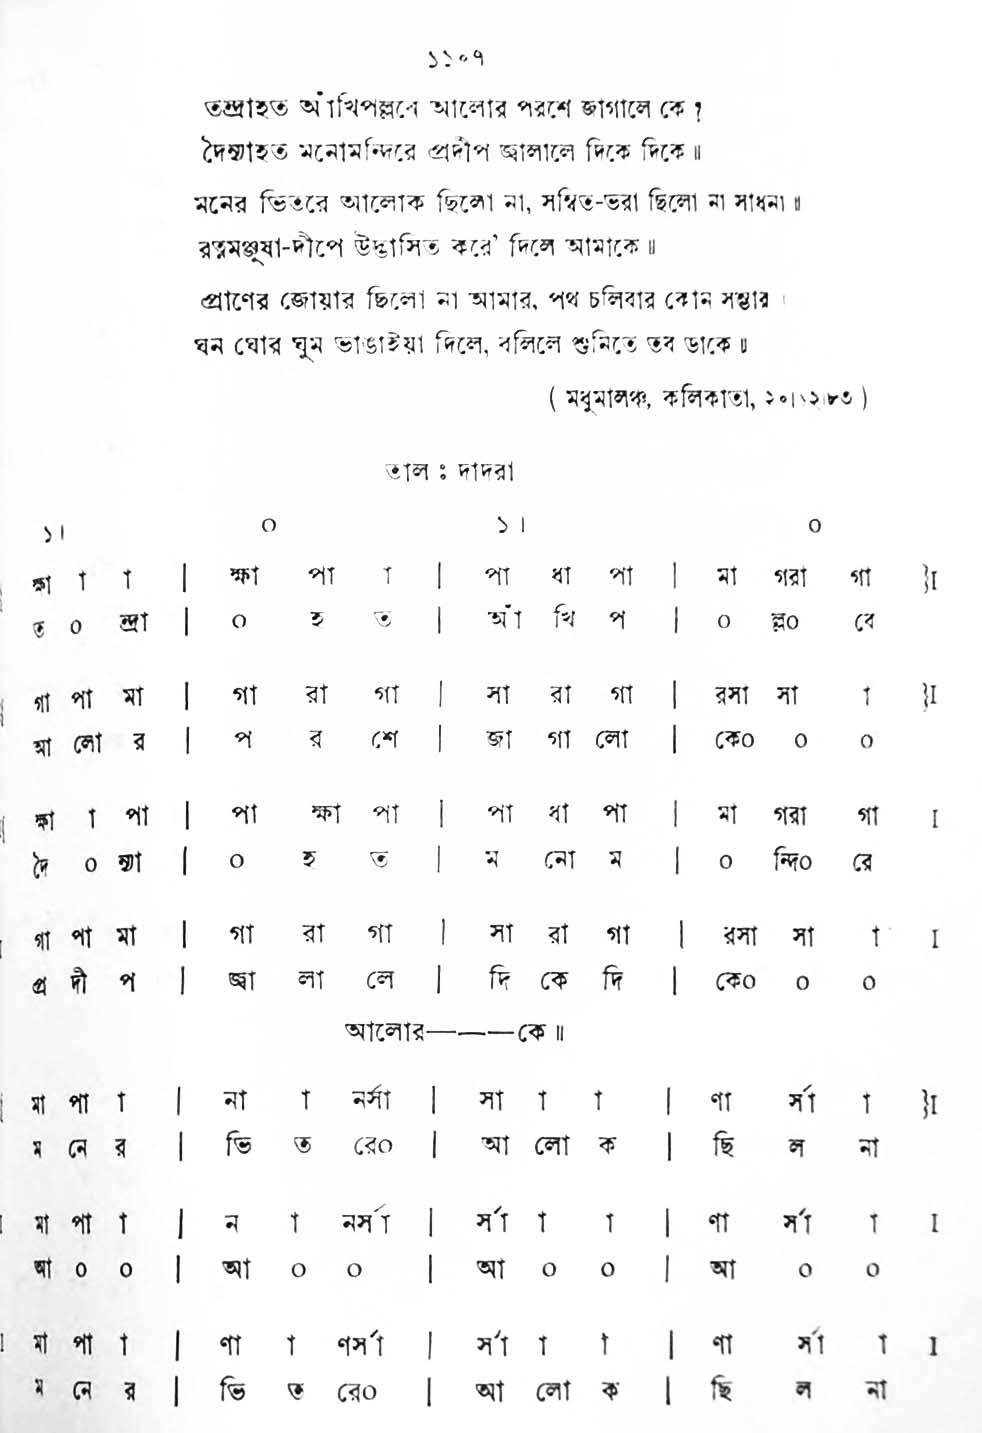 ১১০৭
তন্দ্রাহত আঁখিপল্লবে আলোর পরশে জাগালে কে ?
দৈন্যাহত মনোমন্দিরে প্রদীপ জ্বালালে দিকে দিকে ॥
মনের ভিতরে আলোক ছিলো না, সম্বিত-ভরা ছিলো না সাধনা ॥
রত্নমঞ্জুষা-দীপে উদ্ভাসিত করে' দিলে আমাকে ॥
প্রাণের জোয়ার ছিলো না আমার, পথ চলিবার কোন সম্ভার ।
ঘন ঘোর ঘুম ভাঙাইয়া দিলে, বলিলে শুনিতে তব ডাকে ॥
( মধুমালঞ্চ, কলিকাতা, ২০।১২।৮৩ )
তাল : দাদরা
১। ০ ১। ০
ক্ষা া া | ক্ষা পা া | পা ধা পা | মা গরা গা }I
ত ০ ন্দ্রা | ০ হ ত | আঁ খি প | ০ ল্ল০ বে
গা পা মা | গা রা গা | সা রা গা | রসা সা া }I
আ লো র | প র শে | জা গা লো | কে০ ০ ০
ক্ষা া পা | পা ক্ষা পা | পা ধা পা | মা গরা গা I
দৈ ০ ন্যা | ০ হ ত | ম নো ম | ০ ন্দি০ রে
গা পা মা | গা রা গা | সা রা গা | রসা সা া I
প্র দী প | জ্বা লা লে | দি কে দি | কে০ ০ ০
আলোর———কে ॥
মা পা া | না া নর্সা | সা া া | ণা র্সা া }I
ম নে র | ভি ত রে০ | আ লো ক | ছি ল না
মা পা া | ন া নর্সা | র্সা া া | ণা র্সা া I
আ ০ ০ | আ ০ ০ | আ ০ ০ | আ ০ ০
মা পা া | ণা া ণর্সা | র্সা া া | ণা র্সা া I
ম নে র | ভি ত রে০ | আ লো ক | ছি ল না